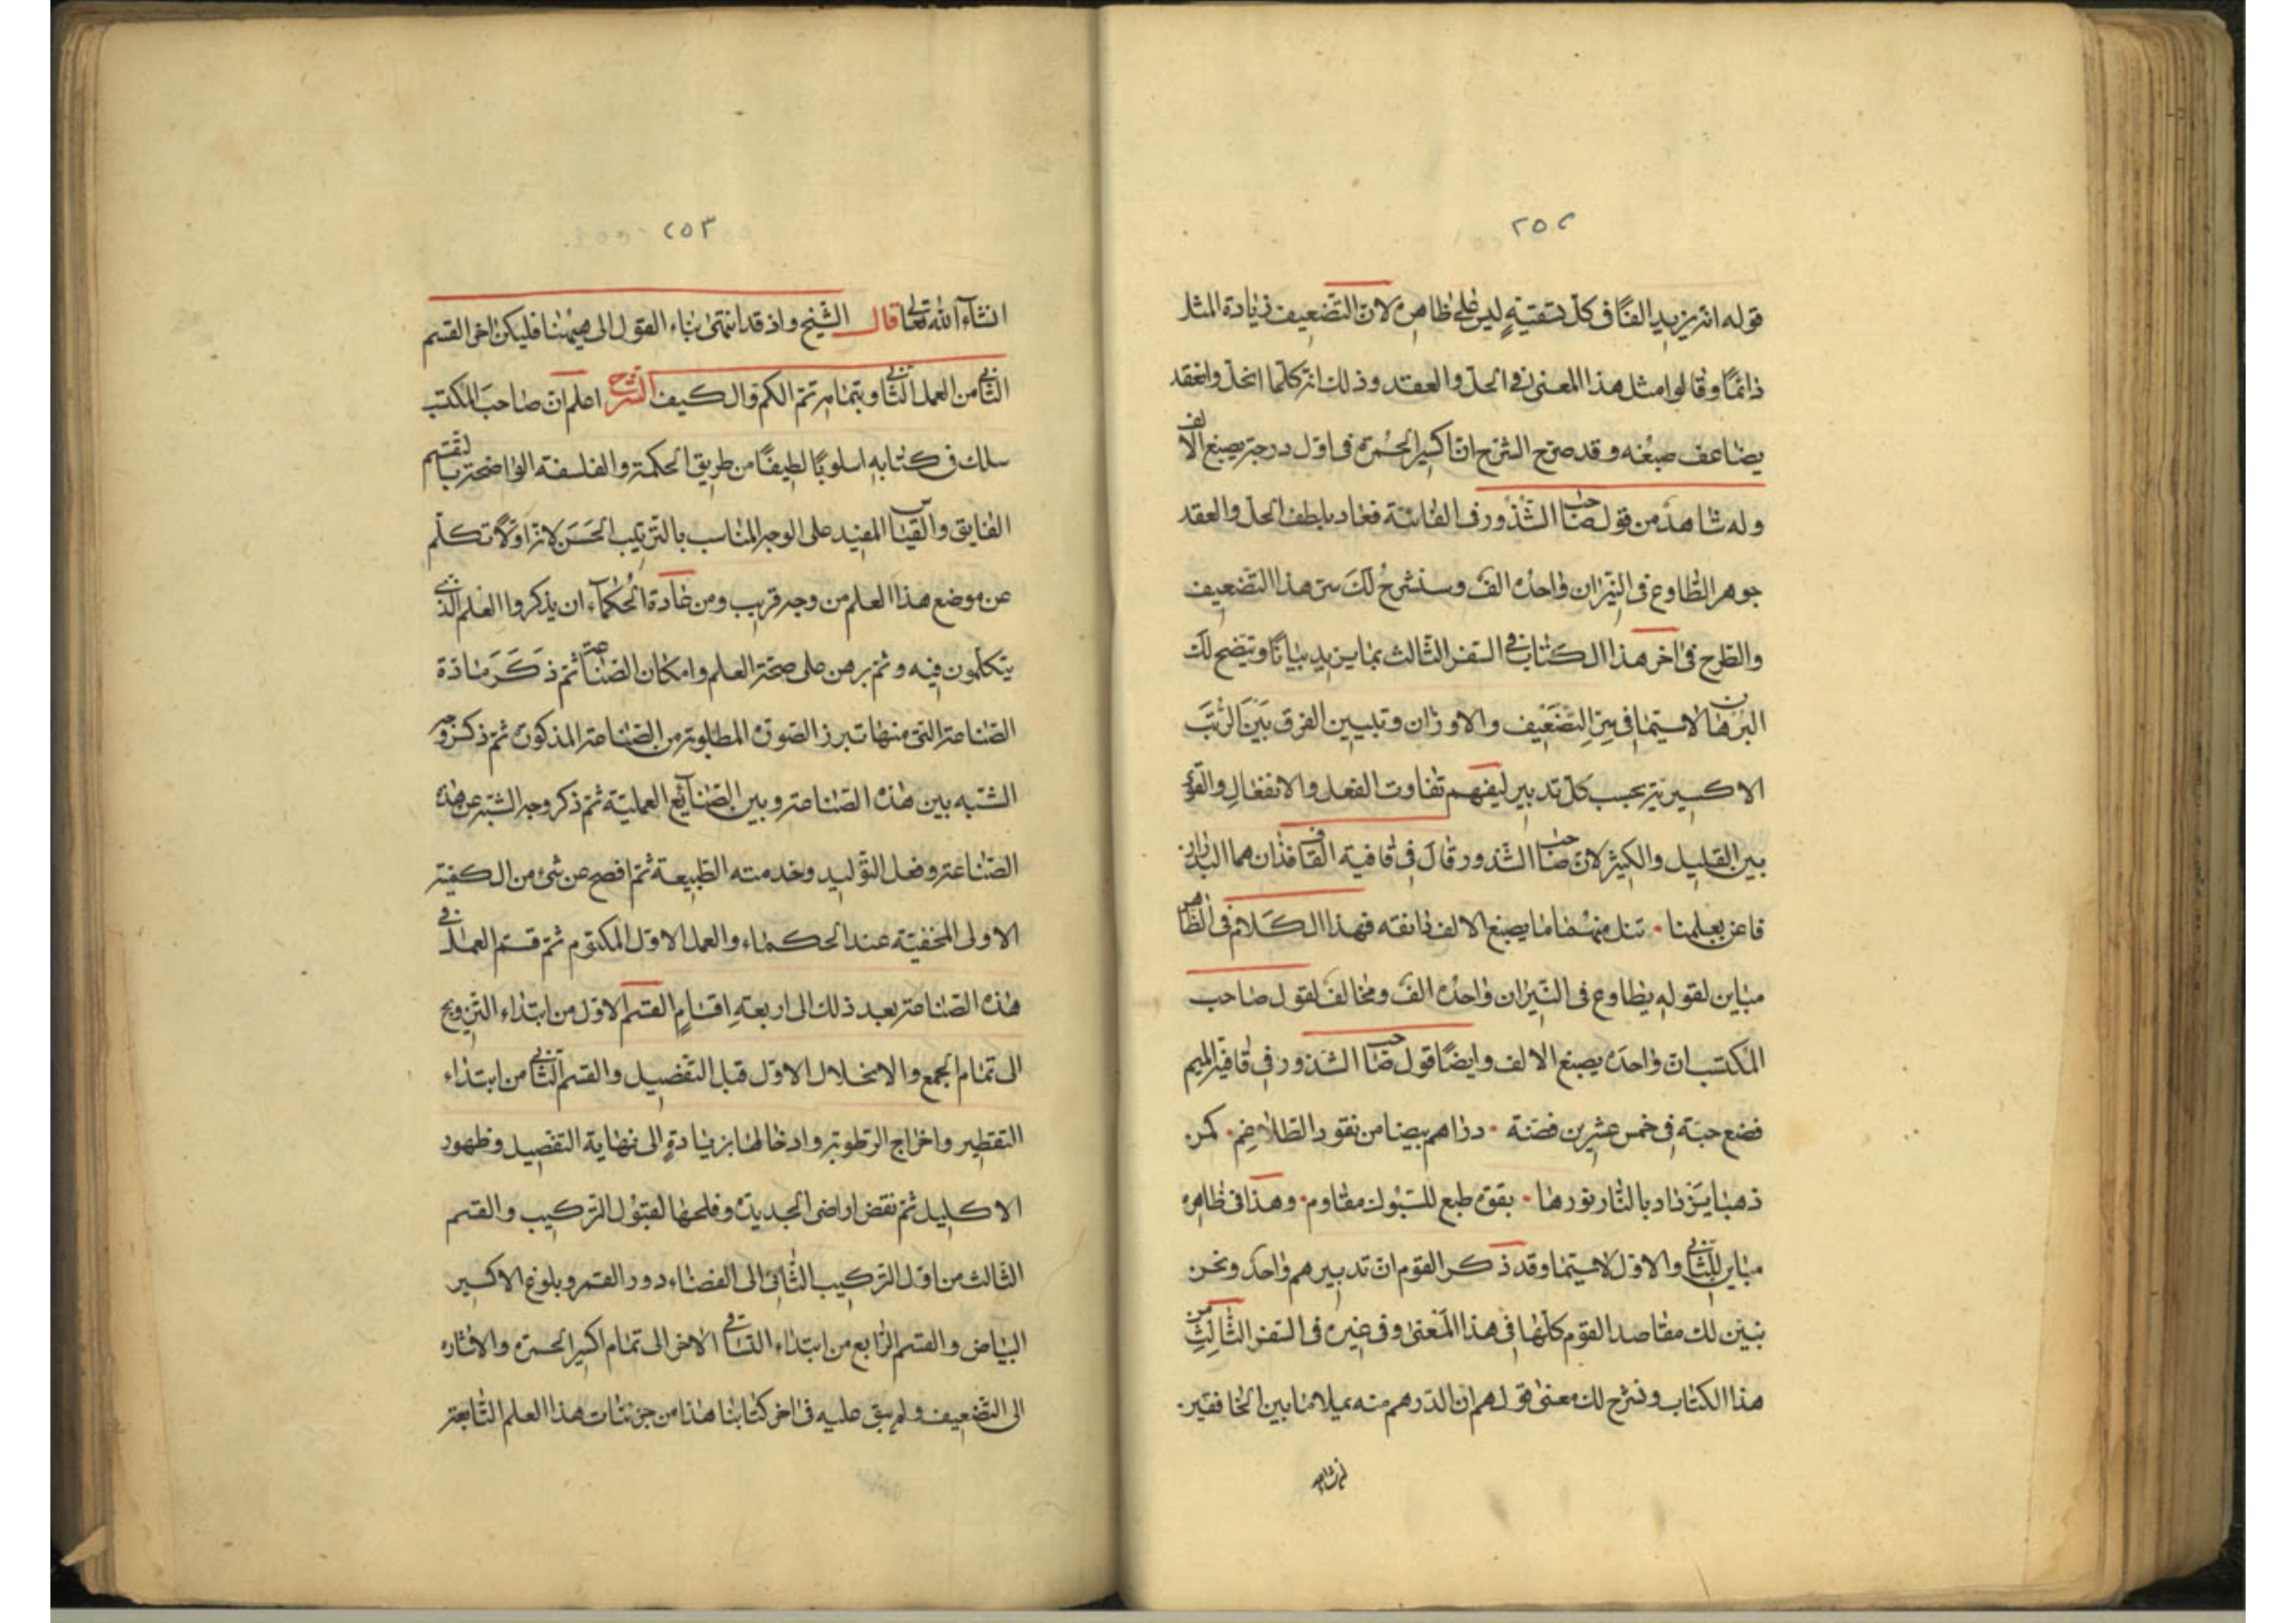 ٢٥٢
قوله انه يزيد الفًا فى كل تسقيةٍ ليس على ظاهره لان التضعيف زيادة المثل
دائمًا وقالوا مثل هذا المعنى فى الحل والعقد وذلك انه كلما انحل وانعقد
يضاعف صبغه وقد صرح الشرح ان اكسير الحمرة فى اول درجة يصبغ الالف
وله شاهد من قول صاحب الشذور فى الفائية فعاد بلطف الحل والعقد
جوهر يطاوع فى النيران واحده الف وسنشرح لك سر هذا التضعيف
والطرح فى اخر هذا الكتاب فى السفر الثالث بما يزيد بيانًا ويتضح لك
البرهان لا سيما فى سر التضعيف والاوزان وتبيين الفرق بين الرتب
الاكسيرية بحسب كل تدبير ليفهم تفاوت الفعل والانفعال والقوى
بين القليل والكثير لان صاحب الشذور قال فى قافية القاف فذان هما البدران
فاعن بعلمنا ٠ تنل منهما ما يصبغ الالف دانقه فهذا الكلام فى الظاهر
مباين لقوله يطاوع فى النيران واحده الف ومخالف لقول صاحب
المكتسب ان واحده يصبغ الالف وايضًا قول صاحب الشذور فى قافية الميم
فضع حبة فى خمس عشرين فضة ٠ دراهم بيضا من نقود الطلاغم ٠ كمن
ذهبا يزداد بالنار نورها ٠ بقوة طبع للسبوك مقاوم ٠ وهذا فى ظاهره
مباين للثانى والاول لا سيما وقد ذكر القوم ان تدبيرهم واحد ونحن
نبين لك مقاصد القوم كلها فى هذا المعنى وفى غيره فى السفر الثالث من
هذا الكتاب ونشرح لك معنى قولهم ان الدرهم منه يملا ما بين الخافقين
٢٥٣
انشاء الله تعالى قال الشيخ واذ قد انتهى بناء القول الى هيهنا فليكن اخر القسم
الثانى من العمل الثانى وبتمامه تم الكم والكيف الشرح اعلم ان صاحب المكتسب
سلك فى كتابه اسلوبًا لطيفًا من طريق الحكمة والفلسفة الواضحة بالتقسيم
الفايق والقياس المفيد على الوجه المناسب بالترتيب الحسن لانه اولًا تكلم
عن موضع هذا العلم من وجه قريب ومن عادة الحكماء ان يذكروا العلم الذى
يتكلمون فيه وثم برهن على صحة العلم وامكان الصناعة ثم ذكر مادة
الصناعة التى منها تبرز الصورة المطلوبة من الصناعة المذكورة ثم ذكر وجه
الشبه بين هذه الصناعة وبين الصنائع العملية ثم ذكر وجه الشبه عن هذه
الصناعة وفعل التوليد وخدمته الطبيعة ثم افصح عن شئ من الكيفية
الاولى المخفية عند الحكماء والعمل الاول المكتوم ثم قسم العمل فى
هذه الصناعة بعد ذلك الى اربعة اقسامٍ القسم الاول من ابتداء التزويج
الى تمام الجمع والانحلال الاول قبل التفصيل والقسم الثانى من ابتداء
التقطير واخراج الرطوبة وادخالها بزيادةٍ الى نهاية التفصيل وظهور
الاكليل ثم نقض اراضى الجديدة وفلحها لقبول التركيب والقسم
الثالث من اول التركيب الثانى الى انفضاء دور القمر وبلوغ الاكسير
البياض والقسم الرابع من ابتداء التساقى الاخر الى تمام اكسير الحمرة والاشاره
الى التضعيف ولم يبق عليه فى اخر كتابنا هذا من جزئيات هذا العلم التابعة